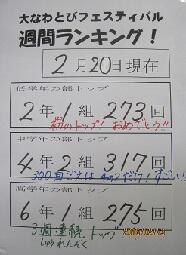 大なわとびフェスティバル
週間ランキング！
2月20日現在
低学年の部トップ
2年1組 273回
初のトップ！おめでとう！！
中学年の部トップ
4年2組 317回
300回ごえは
すごい！
高学年の部トップ
6年1組 275回
3週連続トップ